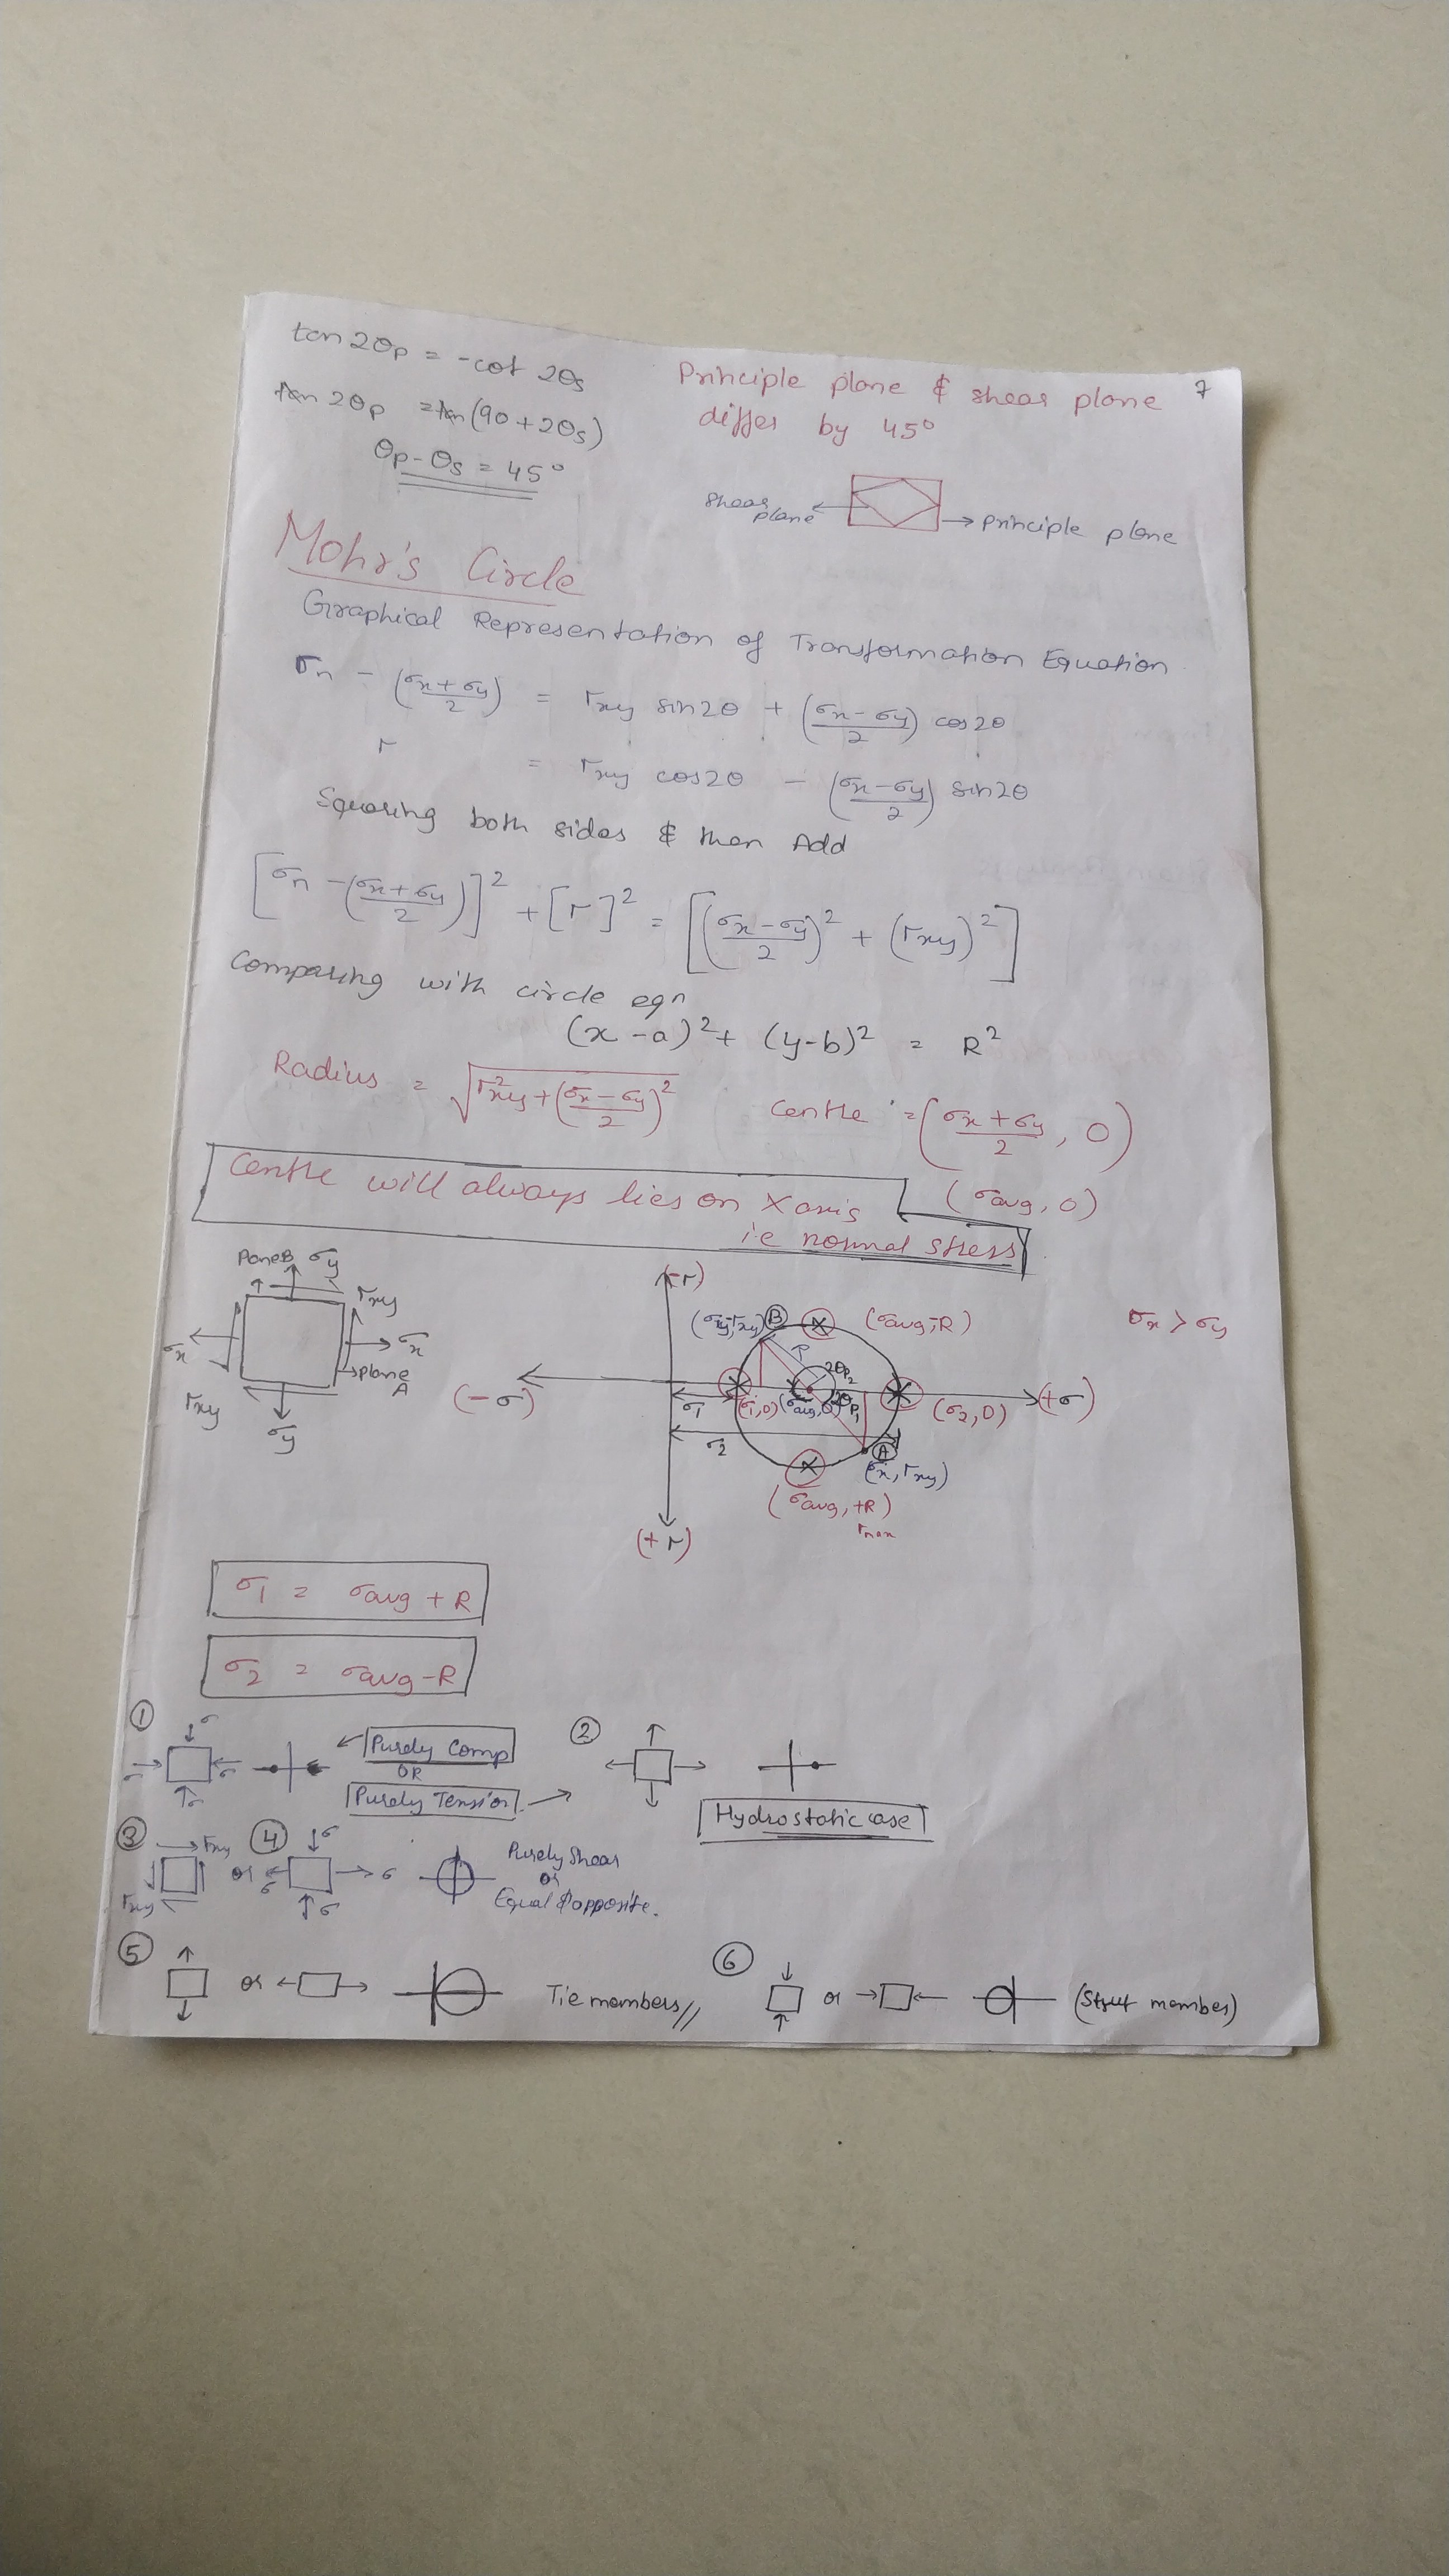 7
tan 2θp = -cot 2θs
tan 2θp = tan(90+2θs)
θp-θs = 45°
Principle plane & shear plane
differ by 45°
shear plane
Principle plane
Mohr's Circle
Graphical Representation of Transformation Equation
σn - (σx+σy)/2 = τxy sin2θ + (σx-σy)/2 cos2θ
τ = τxy cos2θ - (σx-σy)/2 sin2θ
Squaring both sides & then Add
[σn - (σx+σy)/2]² + [τ]² = [((σx-σy)/2)² + (τxy)²]
Comparing with circle eqn
(x-a)² + (y-b)² = R²
Radius = √(τ²xy + ((σx-σy)/2)²)
Centre = ((σx+σy)/2, 0)
Centre will always lies on X axis
i.e normal stress
(σavg, 0)
PaneB σy
τxy
σx
σx
plane A
τxy
σy
(-τ)
(σy,-τxy) B
(σavg,-R)
σx > σy
R
2θp2
2θp1
(-σ)
(+σ)
σ1
(σ1,0)
(σavg,0)
(σ2,0)
σ2
A
(σx, τxy)
(σavg, +R)
τmax
(+τ)
σ1 = σavg + R
σ2 = σavg - R
1
σ
σ
σ
σ
Purely Comp
OR
Purely Tension
2
Hydrostatic case
3
τxy
τxy
or
4
σ
σ
σ
σ
Purely Shear
or
Equal & opposite.
5
or
Tie members//
6
or
(Strut member)